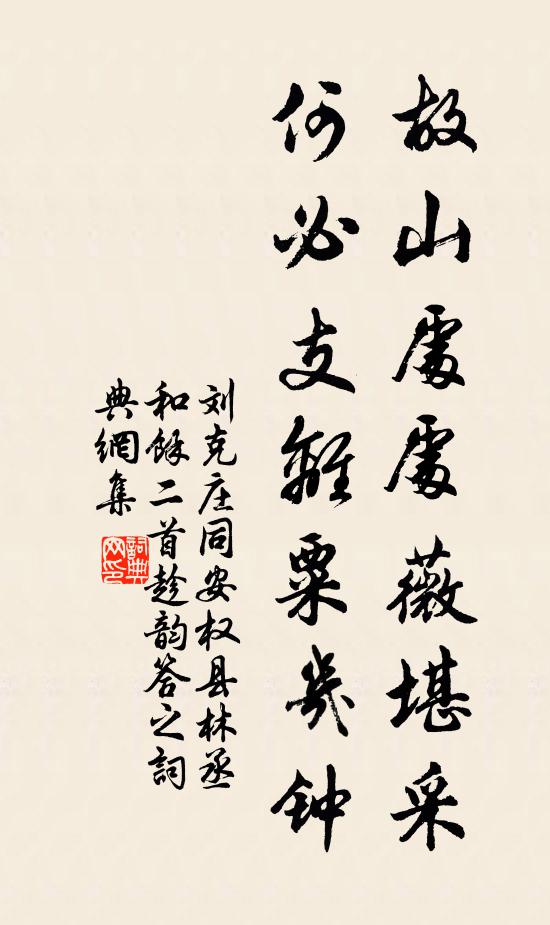 故山處處薇堪采
何必支離粟幾钟
刘克庄同安权县林丞
和餘二首趁韵答之詞
典網集
詞典网印